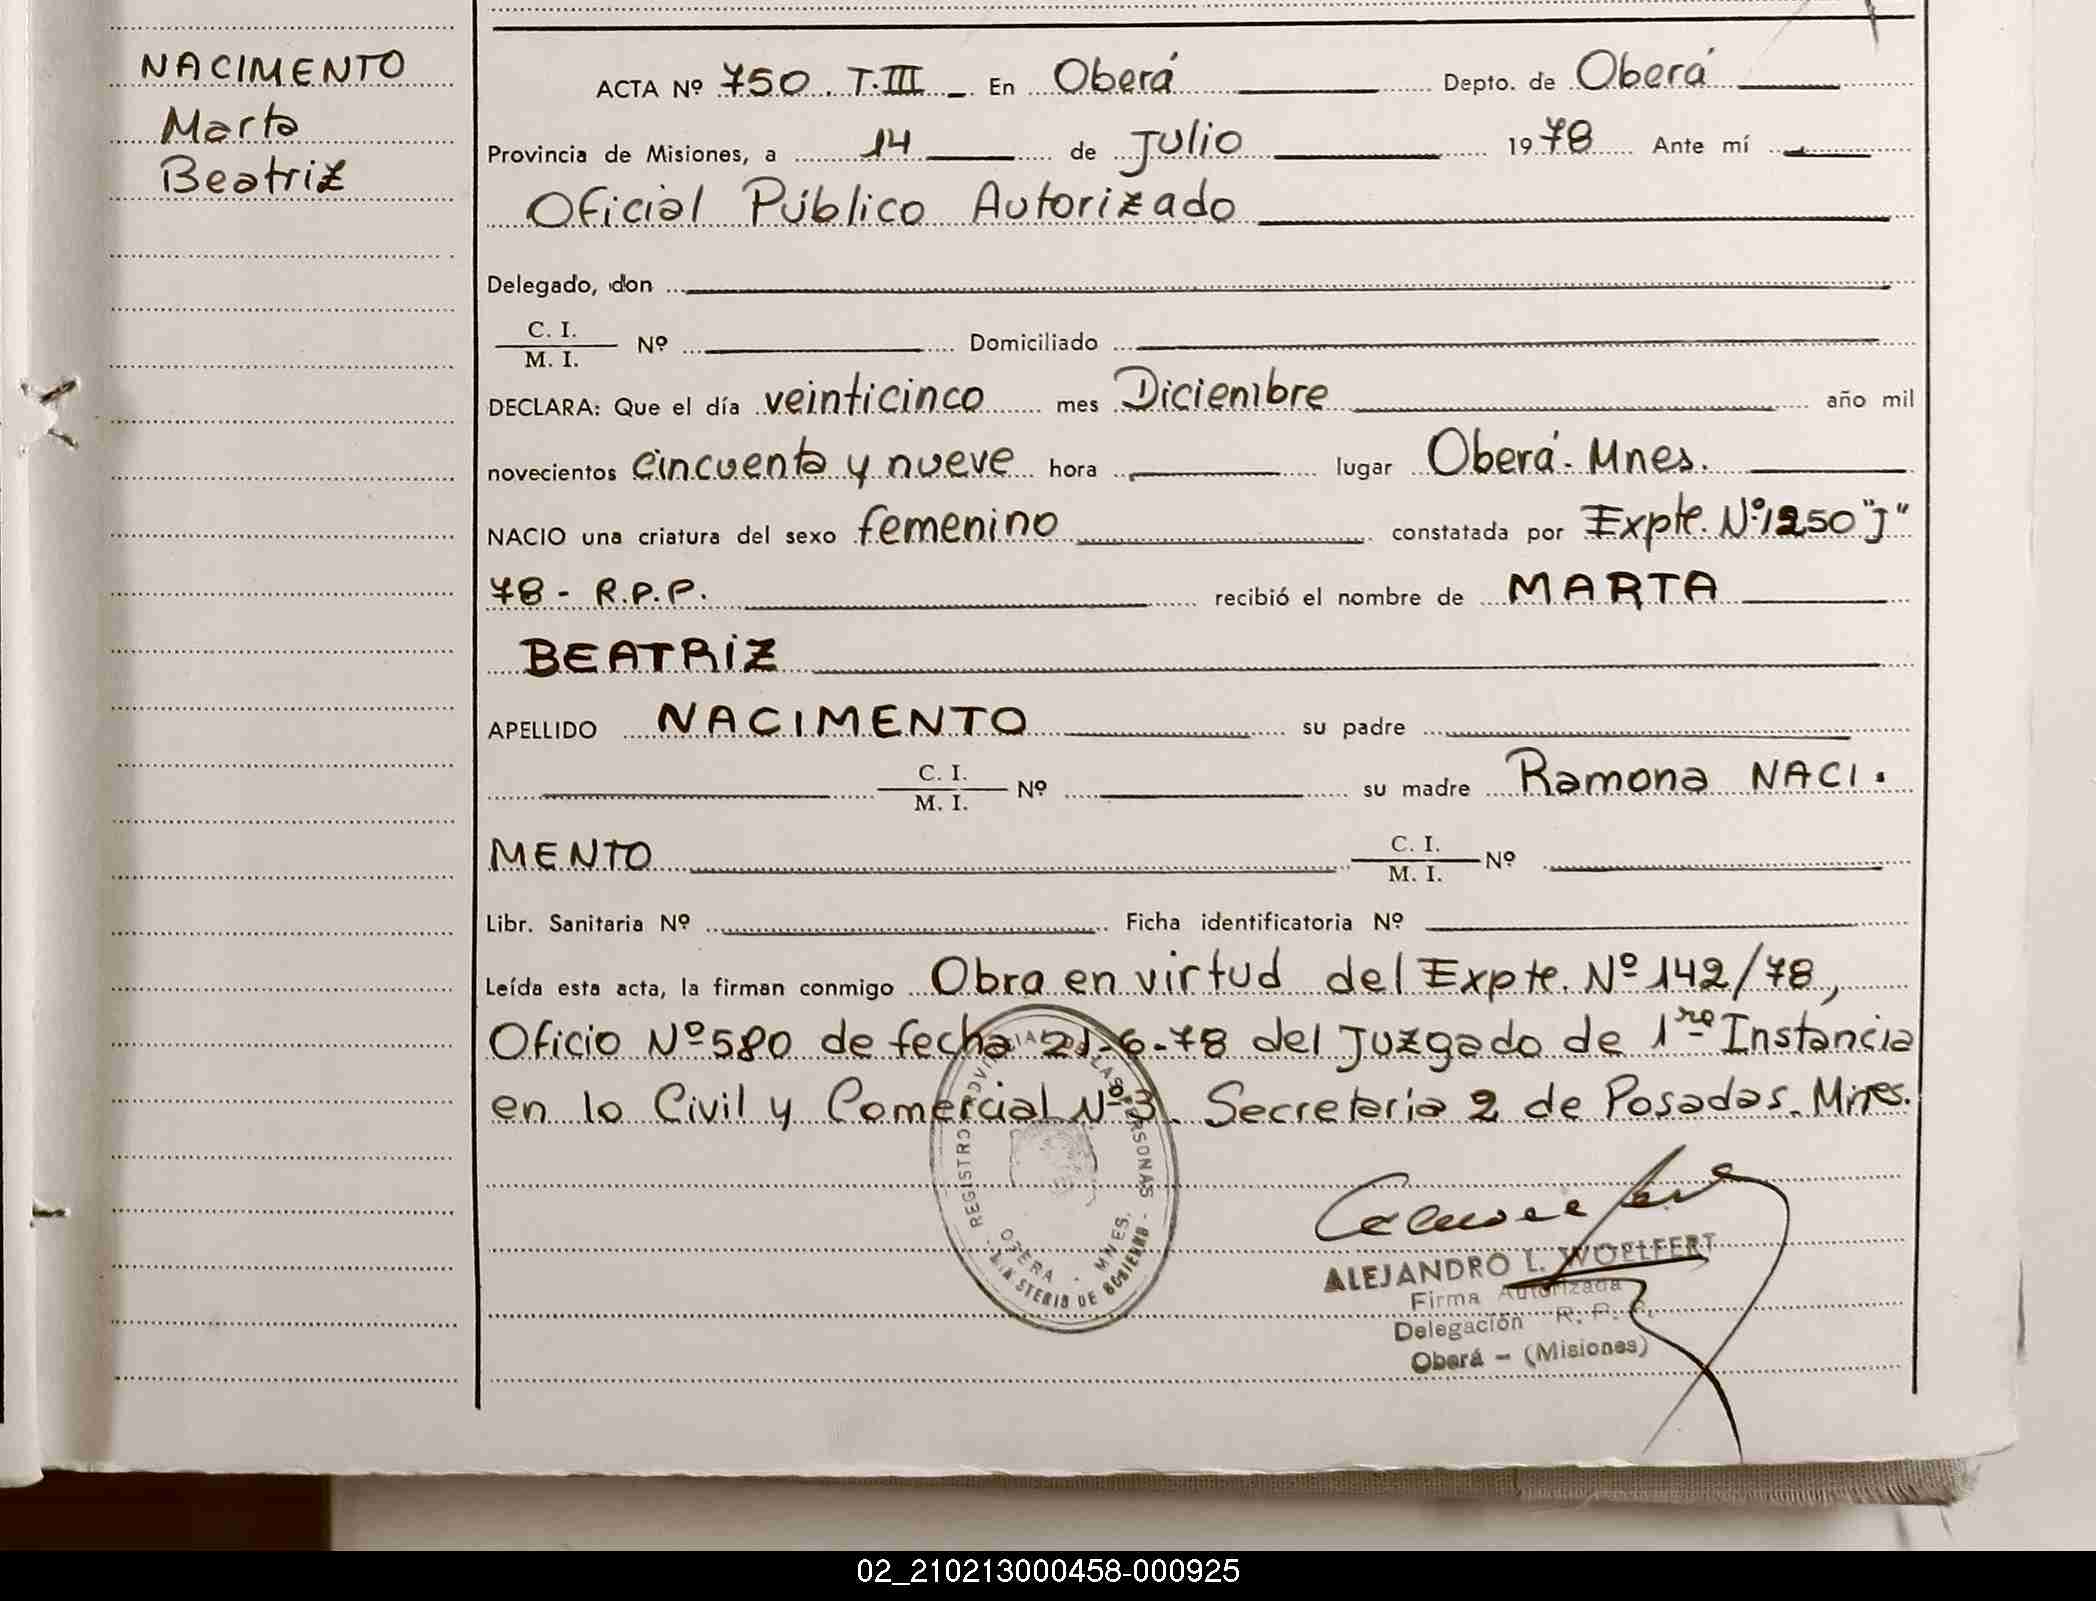 NACIMENTO
Marta
Beatriz
ACTA Nº 750. T.III En Oberá Depto. de Oberá
Provincia de Misiones, a 14 de Julio 1978 Ante mí
Oficial Público Autorizado
Delegado, don
C. I.
M. I. Nº Domiciliado
DECLARA: Que el día veinticinco mes Diciembre año mil
novecientos cincuenta y nueve hora lugar Oberá - Mnes.
NACIO una criatura del sexo femenino constatada por Expte. Nº 1250 "J"
78 - R.P.P. recibió el nombre de MARTA
BEATRIZ
APELLIDO NACIMENTO su padre
C. I.
M. I. Nº su madre Ramona NACI-
MENTO C. I.
M. I. Nº
Libr. Sanitaria Nº Ficha identificatoria Nº
Leída esta acta, la firman conmigo Obra en virtud del Expte. Nº 142/78,
Oficio Nº 580 de fecha 21-6-78 del Juzgado de 1ro Instancia
en lo Civil y Comercial Nº 3. Secretaria 2 de Posadas. Mnes.
REGISTRO PROVINCIAL LAS PERSONAS
OBERA - MNES.
MINISTERIO DE GOBIERNO
ALEJANDRO L. WOELFERT
Firma Autorizada
Delegación R. P. P.
Oberá - (Misiones)
02_210213000458-000925